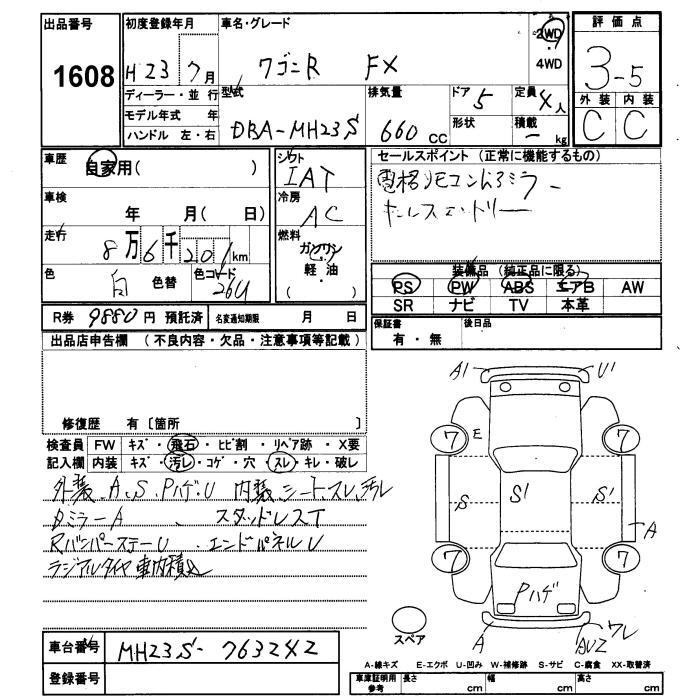 出品番号 1608
初度登録年月 H23 7月
車名・グレード ワゴンR FX
2WD
4WD
評価点 3-5
外装 内装
C C
ディーラー・並行
モデル年式 年
ハンドル 左・右
型式 DBA-MH23S
排気量 660 CC
ドア 5
形状
定員 4人
積載 ― kg
車歴 自家用( )
車検 年 月( 日)
走行 8万6千201km
色 白 色替 色コード 26U
シフト IAT
冷房 AC
燃料 ガソリン
軽・油
( )
セールスポイント (正常に機能するもの)
電格リモコンドアミラー
キーレスエントリー
装備品 (純正品に限る)
PS PW ABS エアB AW
SR ナビ TV 本革
R券 9880円 預託済 名変通知期限 月 日
保証書 有・無
後日品
出品店申告欄 (不良内容・欠品・注意事項等記載)
修復歴 有〔箇所 〕
検査員 FW キズ・飛石・ヒビ割・リペア跡・X要
記入欄 内装 キズ・汚レ・コゲ・穴・スレ・キレ・破レ
外装、A、S、Pハゲ、U 内装、シートスレ、汚レ
DミラーA 、スタッドレスT
RバンパーステーU 、エンドパネルU
ラジアルタイヤ車内積込
A1 U1
7 E 7
S S1 S1
A
7 7
Pハゲ
スペア
A AU2 ワレ
車台番号 MH23S-763242
登録番号
A-線キズ E-エクボ U-凹み W-補修跡 S-サビ C-腐食 XX-取替済
車庫証明用参考 長さ cm 幅 cm 高さ cm